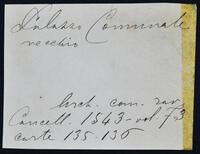 Palazzo Comunale
vecchio
Arch. com. rav.
Cancell. 1543 - vol 73
carte 135. 136